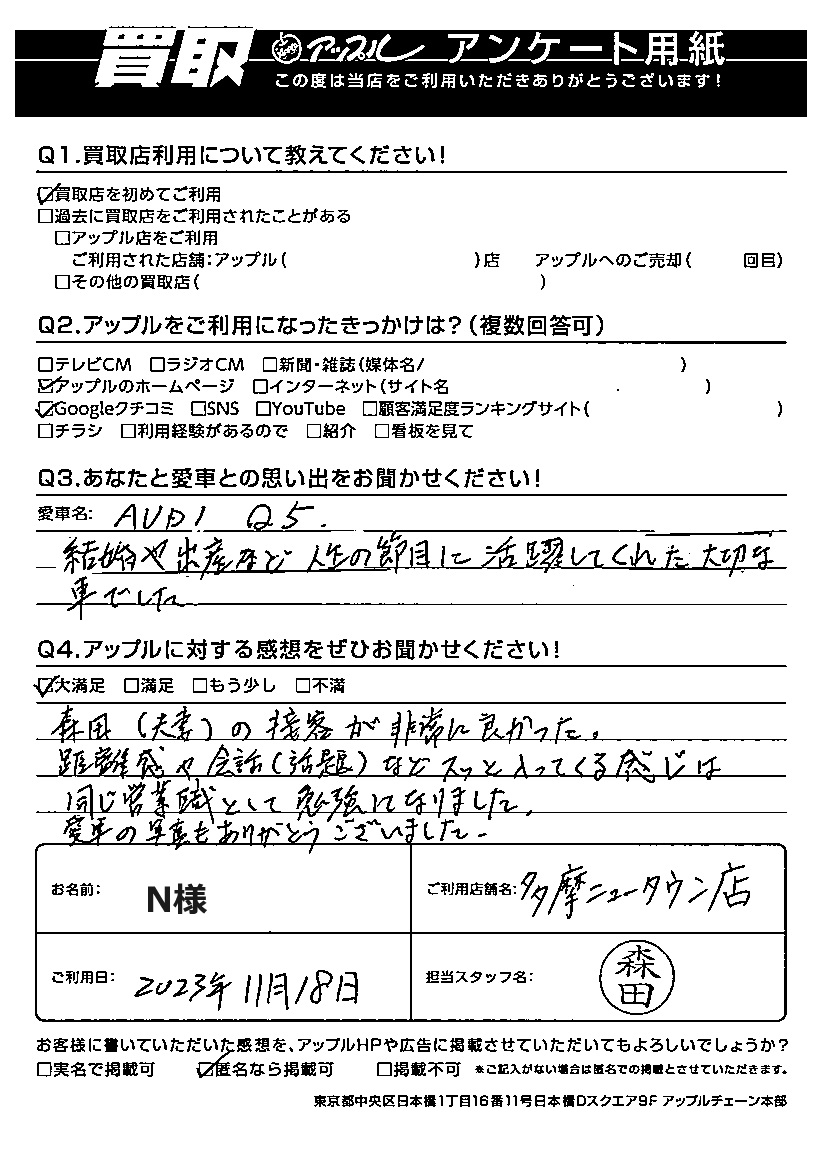 買取 アップル アンケート用紙
この度は当店をご利用いただきありがとうございます!
Q1.買取店利用について教えてください!
☑買取店を初めてご利用
□過去に買取店をご利用されたことがある
□アップル店をご利用
ご利用された店舗:アップル( )店 アップルへのご売却( 回目)
□その他の買取店( )
Q2.アップルをご利用になったきっかけは?(複数回答可)
□テレビCM □ラジオCM □新聞・雑誌(媒体名/ )
☑アップルのホームページ □インターネット(サイト名 )
☑Googleクチコミ □SNS □YouTube □顧客満足度ランキングサイト( )
□チラシ □利用経験があるので □紹介 □看板を見て
Q3.あなたと愛車との思い出をお聞かせください!
愛車名: AUDI Q5.
結婚や出産など人生の節目に活躍してくれた大切な
車でした
Q4.アップルに対する感想をぜひお聞かせください!
☑大満足 □満足 □もう少し □不満
森田(夫妻)の接客が非常に良かった。
距離感や会話(話題)などスッと入ってくる感じは
同じ営業職として勉強になりました。
愛車の写真もありがとうございました。
お名前: N様 ご利用店舗名:多摩ニュータウン店
ご利用日: 2023年11月18日 担当スタッフ名: 森田
お客様に書いていただいた感想を、アップルHPや広告に掲載させていただいてもよろしいでしょうか?
□実名で掲載可 ☑匿名なら掲載可 □掲載不可 ※ご記入がない場合は匿名での掲載とさせていただきます。
東京都中央区日本橋1丁目16番11号日本橋Dスクエア9F アップルチェーン本部